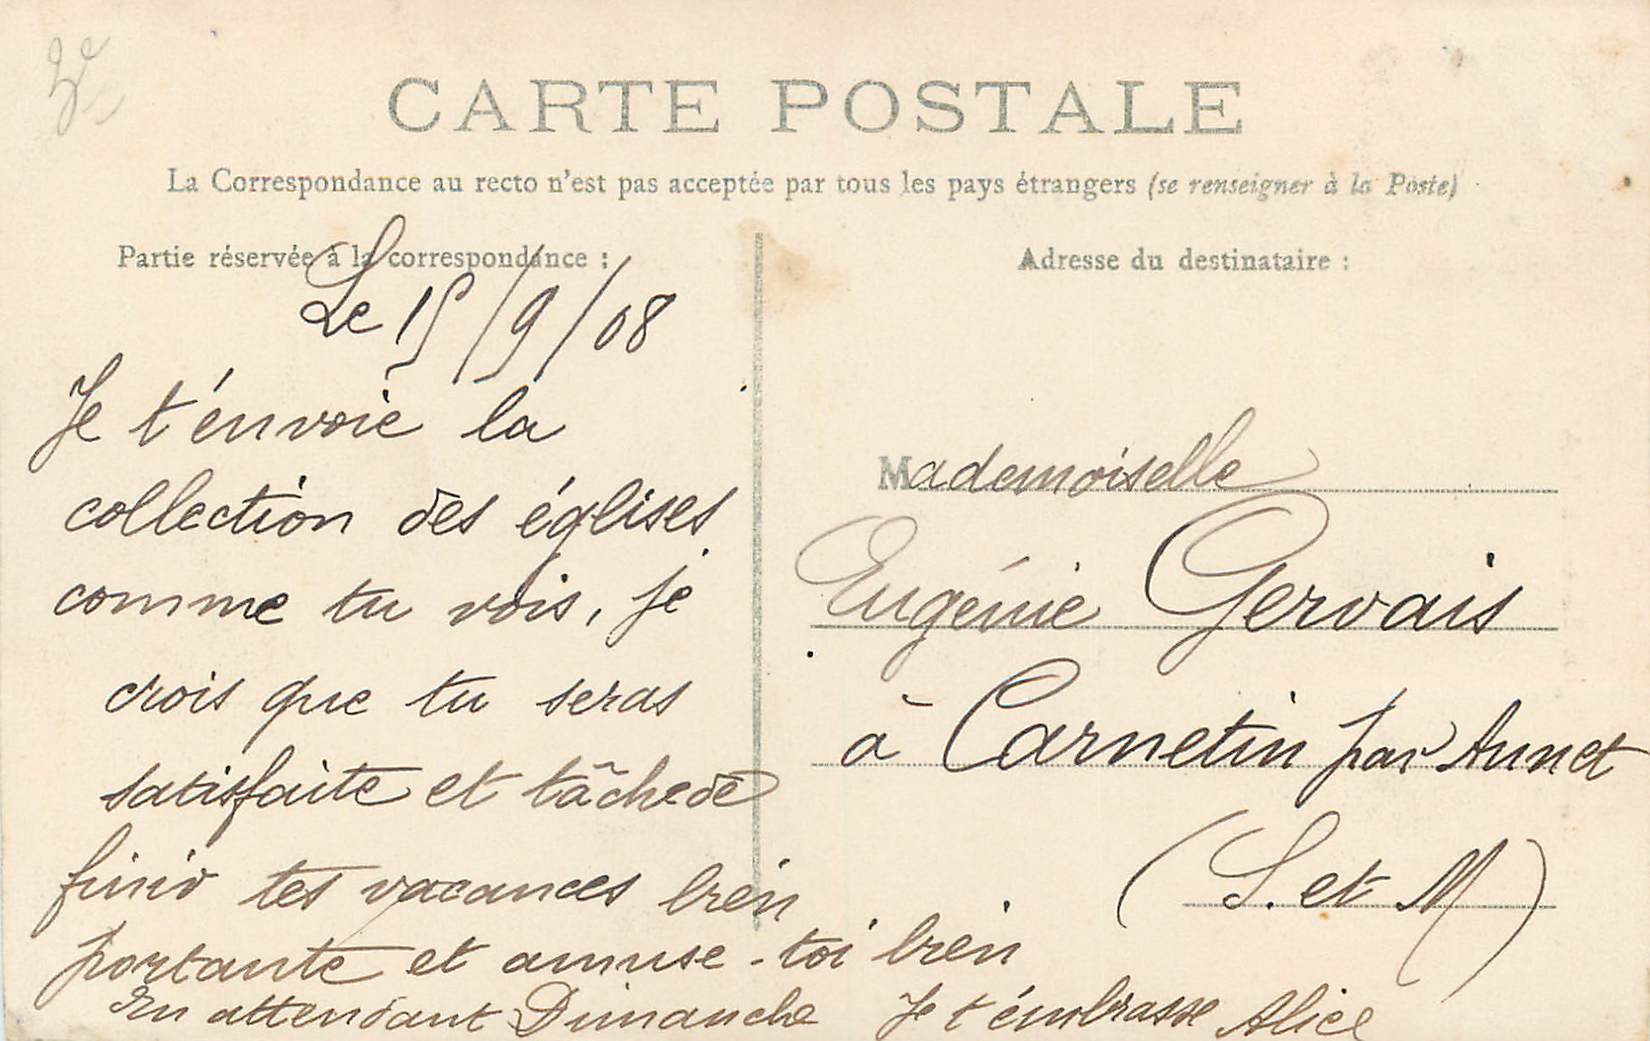 CARTE POSTALE
La Correspondance au recto n'est pas acceptée par tous les pays étrangers (se renseigner à la Poste)
Partie réservée à la correspondance :
Le 15/9/08
Je t'énvoie la
collection des églises
comme tu vois, je
crois que tu seras
satisfaite et tâche de
finir tes vacances bien
portante et amuse-toi bien
En attendant Dimanche Je t'émbrasse Alice
Adresse du destinataire :
Mademoiselle
Eugénie Gervais
à Carnetin par Annet
(S. et M)